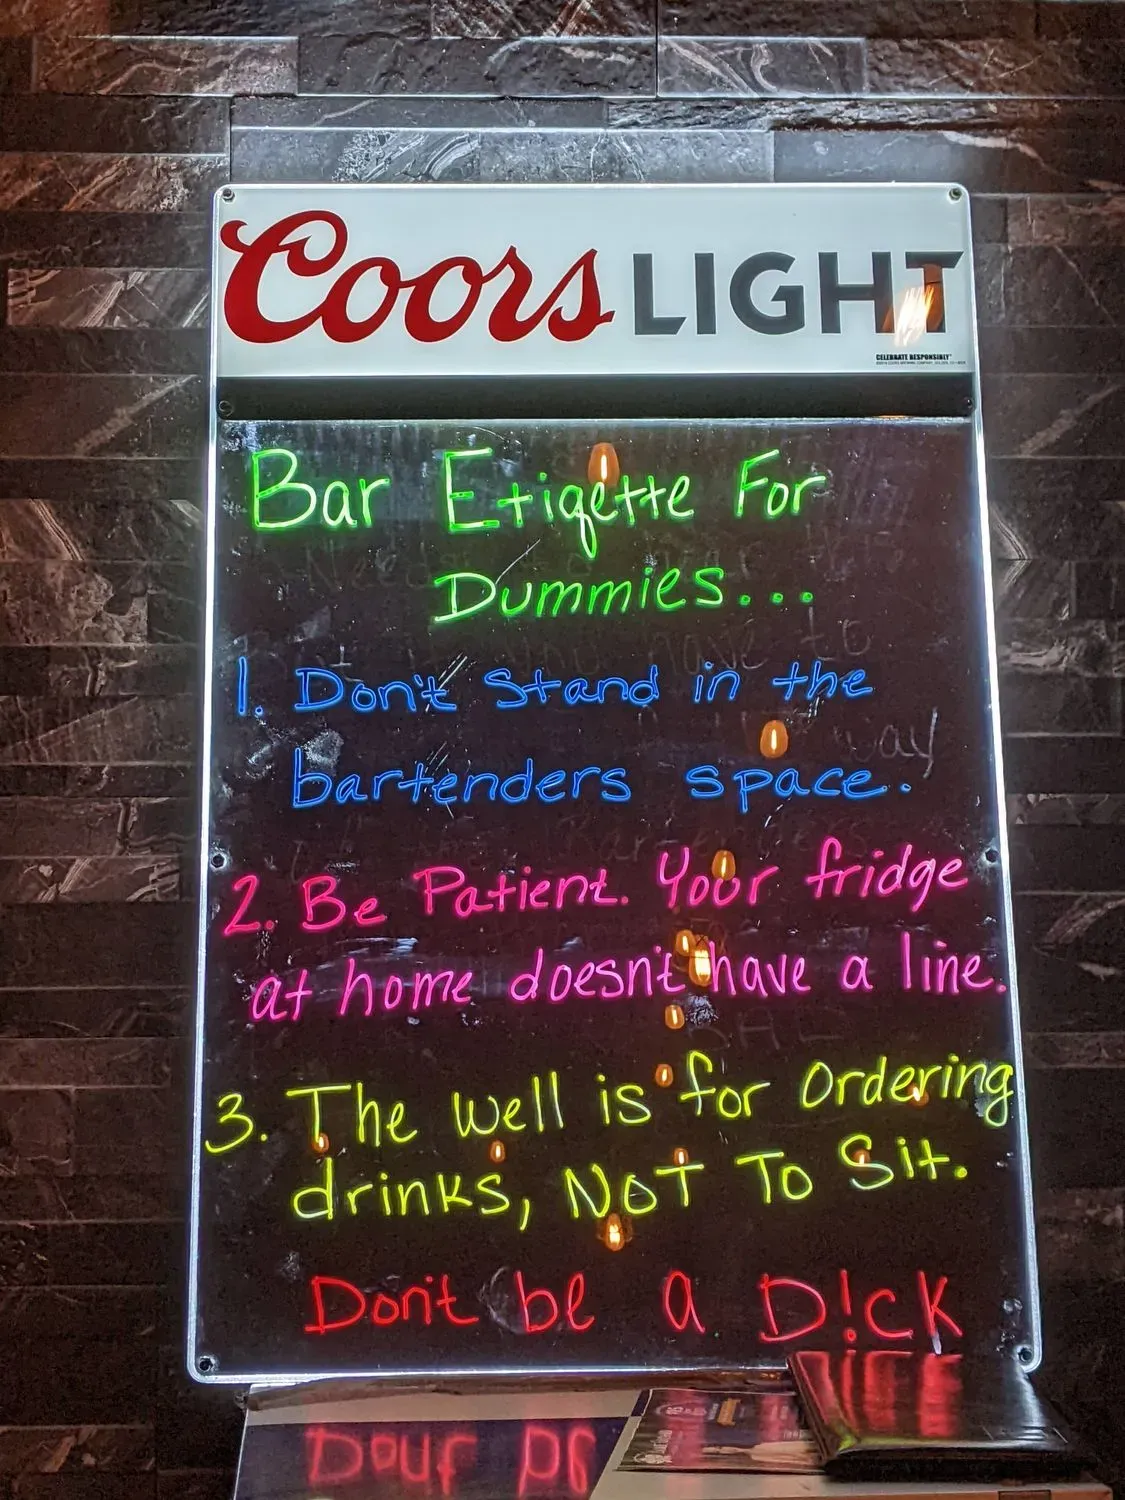 Coors LIGHT
CELEBRATE RESPONSIBLY
Bar Etiqette For
Dummies...
1. Don't Stand in the
bartenders space.
2. Be Patient. Your fridge
at home doesn't have a line.
3. The well is for Ordering
drinks, NOT To Sit.
Don't be a D!cK